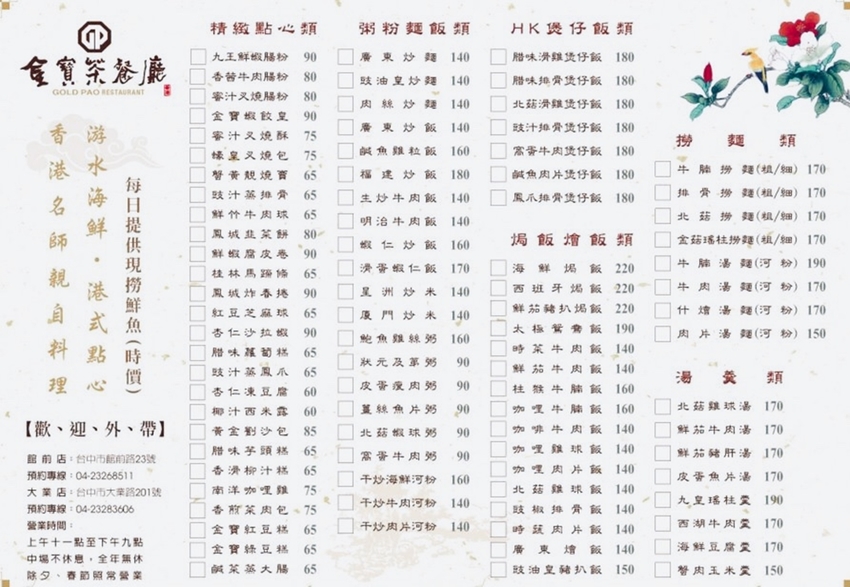 金寶茶餐廳
GOLD PAO RESTAURANT
游水海鮮・港式點心
香港名師親自料理
每日提供現撈鮮魚(時價)
【歡、迎、外、帶】
館前店：台中市館前路23號
預約專線：04-23268511
大業店：台中市大業路201號
預約專線：04-23283606
營業時間：
上午十一點至下午九點
中場不休息，全年無休
除夕、春節照常營業
精緻點心類
九王鮮蝦腸粉 90
香茜牛肉腸粉 80
蜜汁叉燒腸粉 80
金寶蝦餃皇 90
蜜汁叉燒酥 75
蠔皇叉燒包 75
蟹黃靚燒賣 65
豉汁蒸排骨 65
鮮竹牛肉球 65
鳳城韭菜餅 80
鮮蝦腐皮卷 90
桂林馬蹄條 65
鳳城炸春捲 90
紅豆芝麻球 65
杏仁沙拉蝦 90
腊味蘿蔔糕 65
豉汁蒸鳳爪 65
杏仁凍豆腐 60
椰汁西米露 60
黃金劉沙包 85
腊味芋頭糕 65
香滑椰汁糕 65
南洋咖哩雞 75
香煎菜肉包 75
金寶紅豆糕 65
金寶綠豆糕 65
鹹菜蒸大腸 65
粥粉麵飯類
廣東炒麵 140
豉油皇炒麵 140
肉絲炒麵 140
廣東炒飯 140
鹹魚雞粒飯 160
福建炒飯 180
生炒牛肉飯 140
明治牛肉飯 140
蝦仁炒飯 160
滑蛋蝦仁飯 170
星洲炒米 140
廈門炒米 140
鮑魚雞絲粥 160
狀元及第粥 90
皮蛋瘦肉粥 90
薑絲魚片粥 90
北菇蝦球粥 90
窩蛋牛肉粥 90
干炒海鮮河粉 160
干炒牛肉河粉 140
干炒肉片河粉 140
HK煲仔飯類
腊味滑雞煲仔飯 180
腊味排骨煲仔飯 180
北菇滑雞煲仔飯 180
豉汁排骨煲仔飯 180
窩蛋牛肉煲仔飯 180
鹹魚肉片煲仔飯 180
鳳爪排骨煲仔飯 180
焗飯燴飯類
海鮮焗飯 220
西班牙焗飯 220
鮮茄豬扒焗飯 220
太極鴛鴦飯 190
時菜牛肉飯 140
鮮茄牛肉飯 140
柱猴牛腩飯 160
咖哩牛腩飯 160
咖哩牛肉飯 140
咖哩雞球飯 140
咖哩肉片飯 140
北菇雞球飯 140
豉椒排骨飯 140
時蔬肉片飯 140
廣東燴飯 140
豉油皇豬扒飯 150
撈麵類
牛腩撈麵(粗/細) 170
排骨撈麵(粗/細) 170
北菇撈麵(粗/細) 170
金菇瑤柱撈麵(粗/細) 170
牛腩湯麵(河粉) 190
牛肉湯麵(河粉) 170
什燴湯麵(河粉) 170
肉片湯麵(河粉) 150
湯羹類
北菇雞球湯 170
鮮茄牛肉湯 170
鮮茄豬肝湯 170
皮蛋魚片湯 170
九皇瑤柱羹 190
西湖牛肉羹 170
海鮮豆腐羹 170
蟹肉玉米羹 150